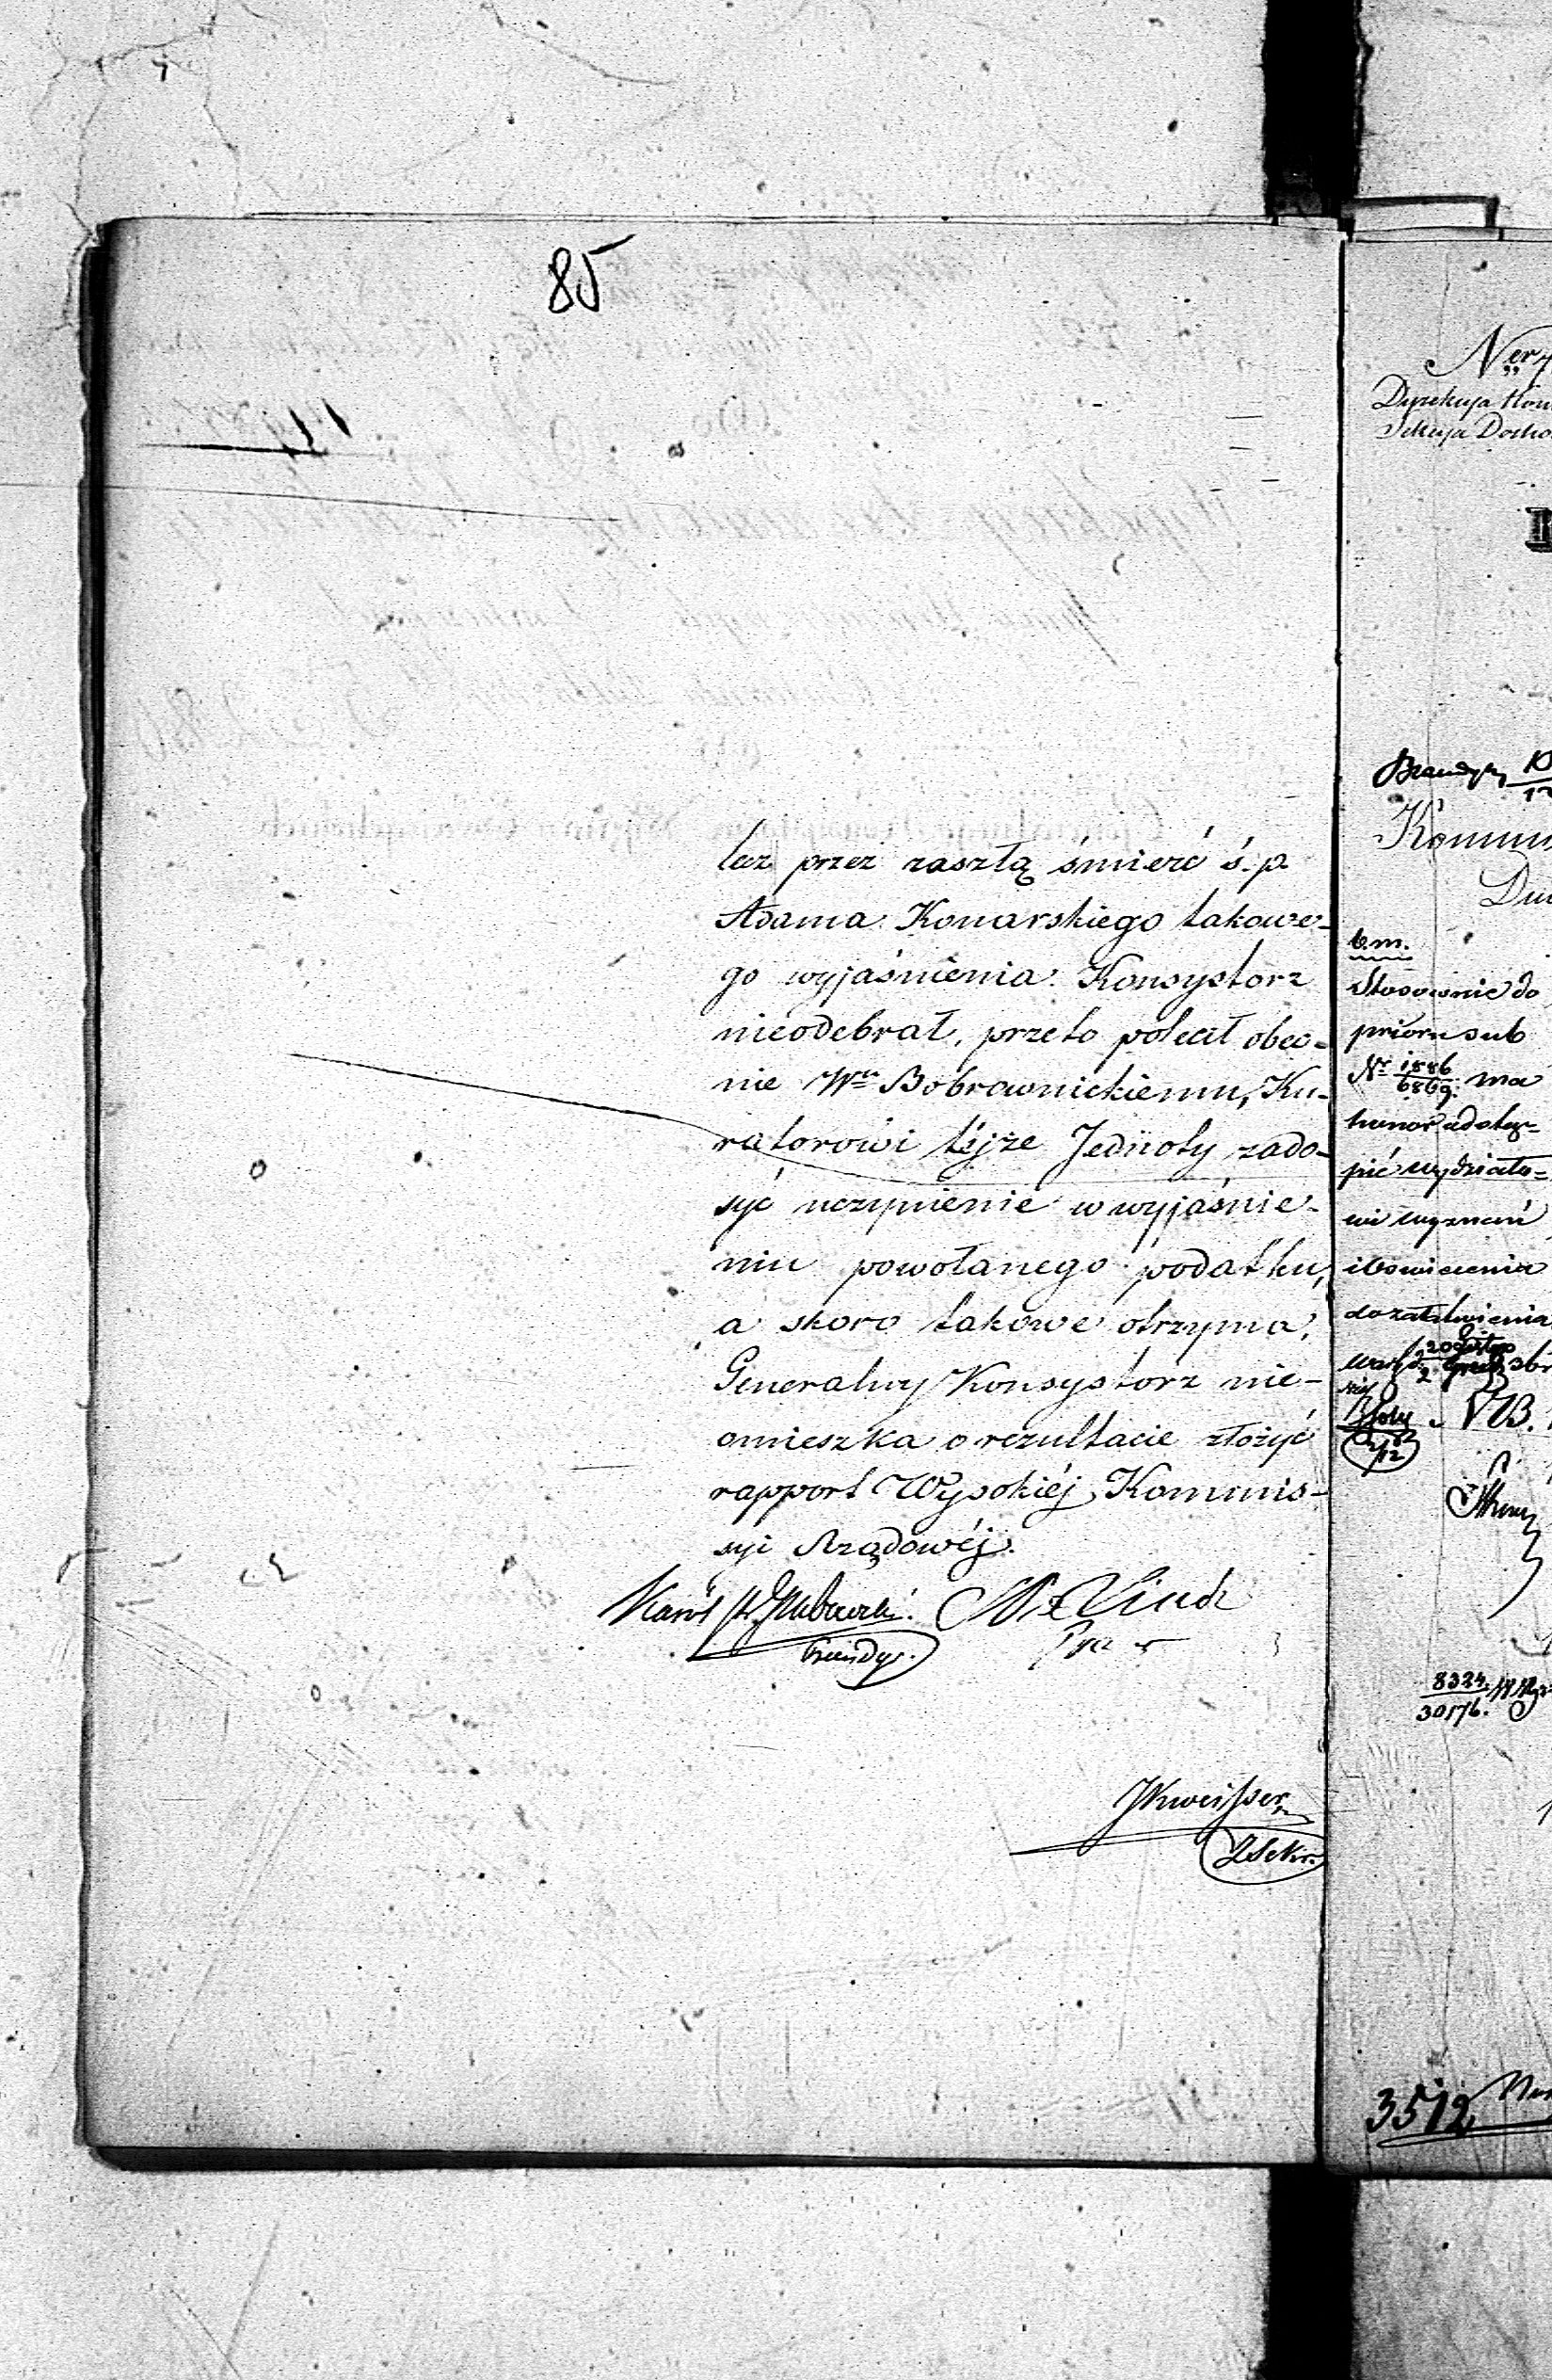 85
lecz przez zaszłą śmierć ś. p.
Adama Konarskiego takowe-
go wyjaśnienia Konsystorz
nieodebrał, przeto polecił obec-
nie Wmu Bobrownickiemu, Ku-
ratorowi tèjże Jednoty zado-
syć uczynienie w wyjaśnie-
niu powołanego podatku,
a skoro takowe otrzyma,
Generalny Konsystorz nie-
omieszka o rezultacie złożyć
rapport Wysokiéj Kommis-
syi Rządowéj.
Karól
Linde
Prez
JKweisser
Sekr.
Ner
Dyrekcya
Sekcya Docho
Kommis
Du
b.m.
Stosownie do
prioru sub
Nr 1886/6869. ma
honor odstą-
pić wydziało-
wi wyznań
i Oswiecenia
do załatwienia
8324.
30176.
3512